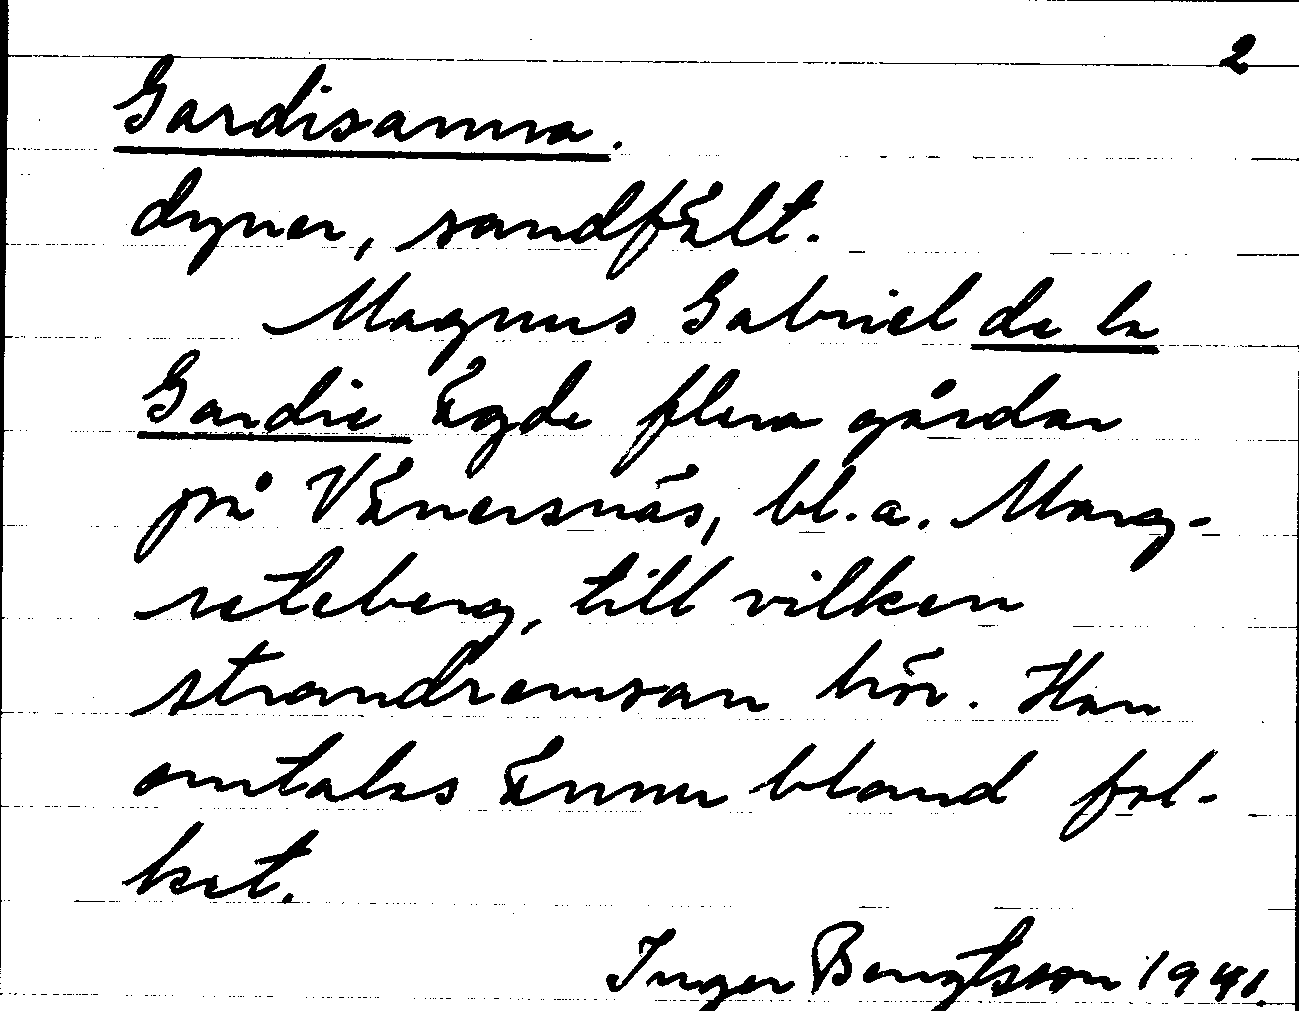 2
Gardisanna.
dyner, sandfält.
Magnus Gabriel de la
Gardie ägde flera gårdar
på Vänersnäs, bl.a. Marg-
reteberg, till vilken
strandremsan hör. Han
omtalas ännu bland fol-
ket.
Inger Bengtsson 1941.